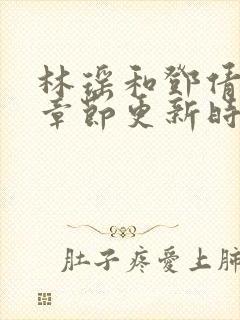 林瑶和鄧倩
章節更新時
肚子疼愛上肺